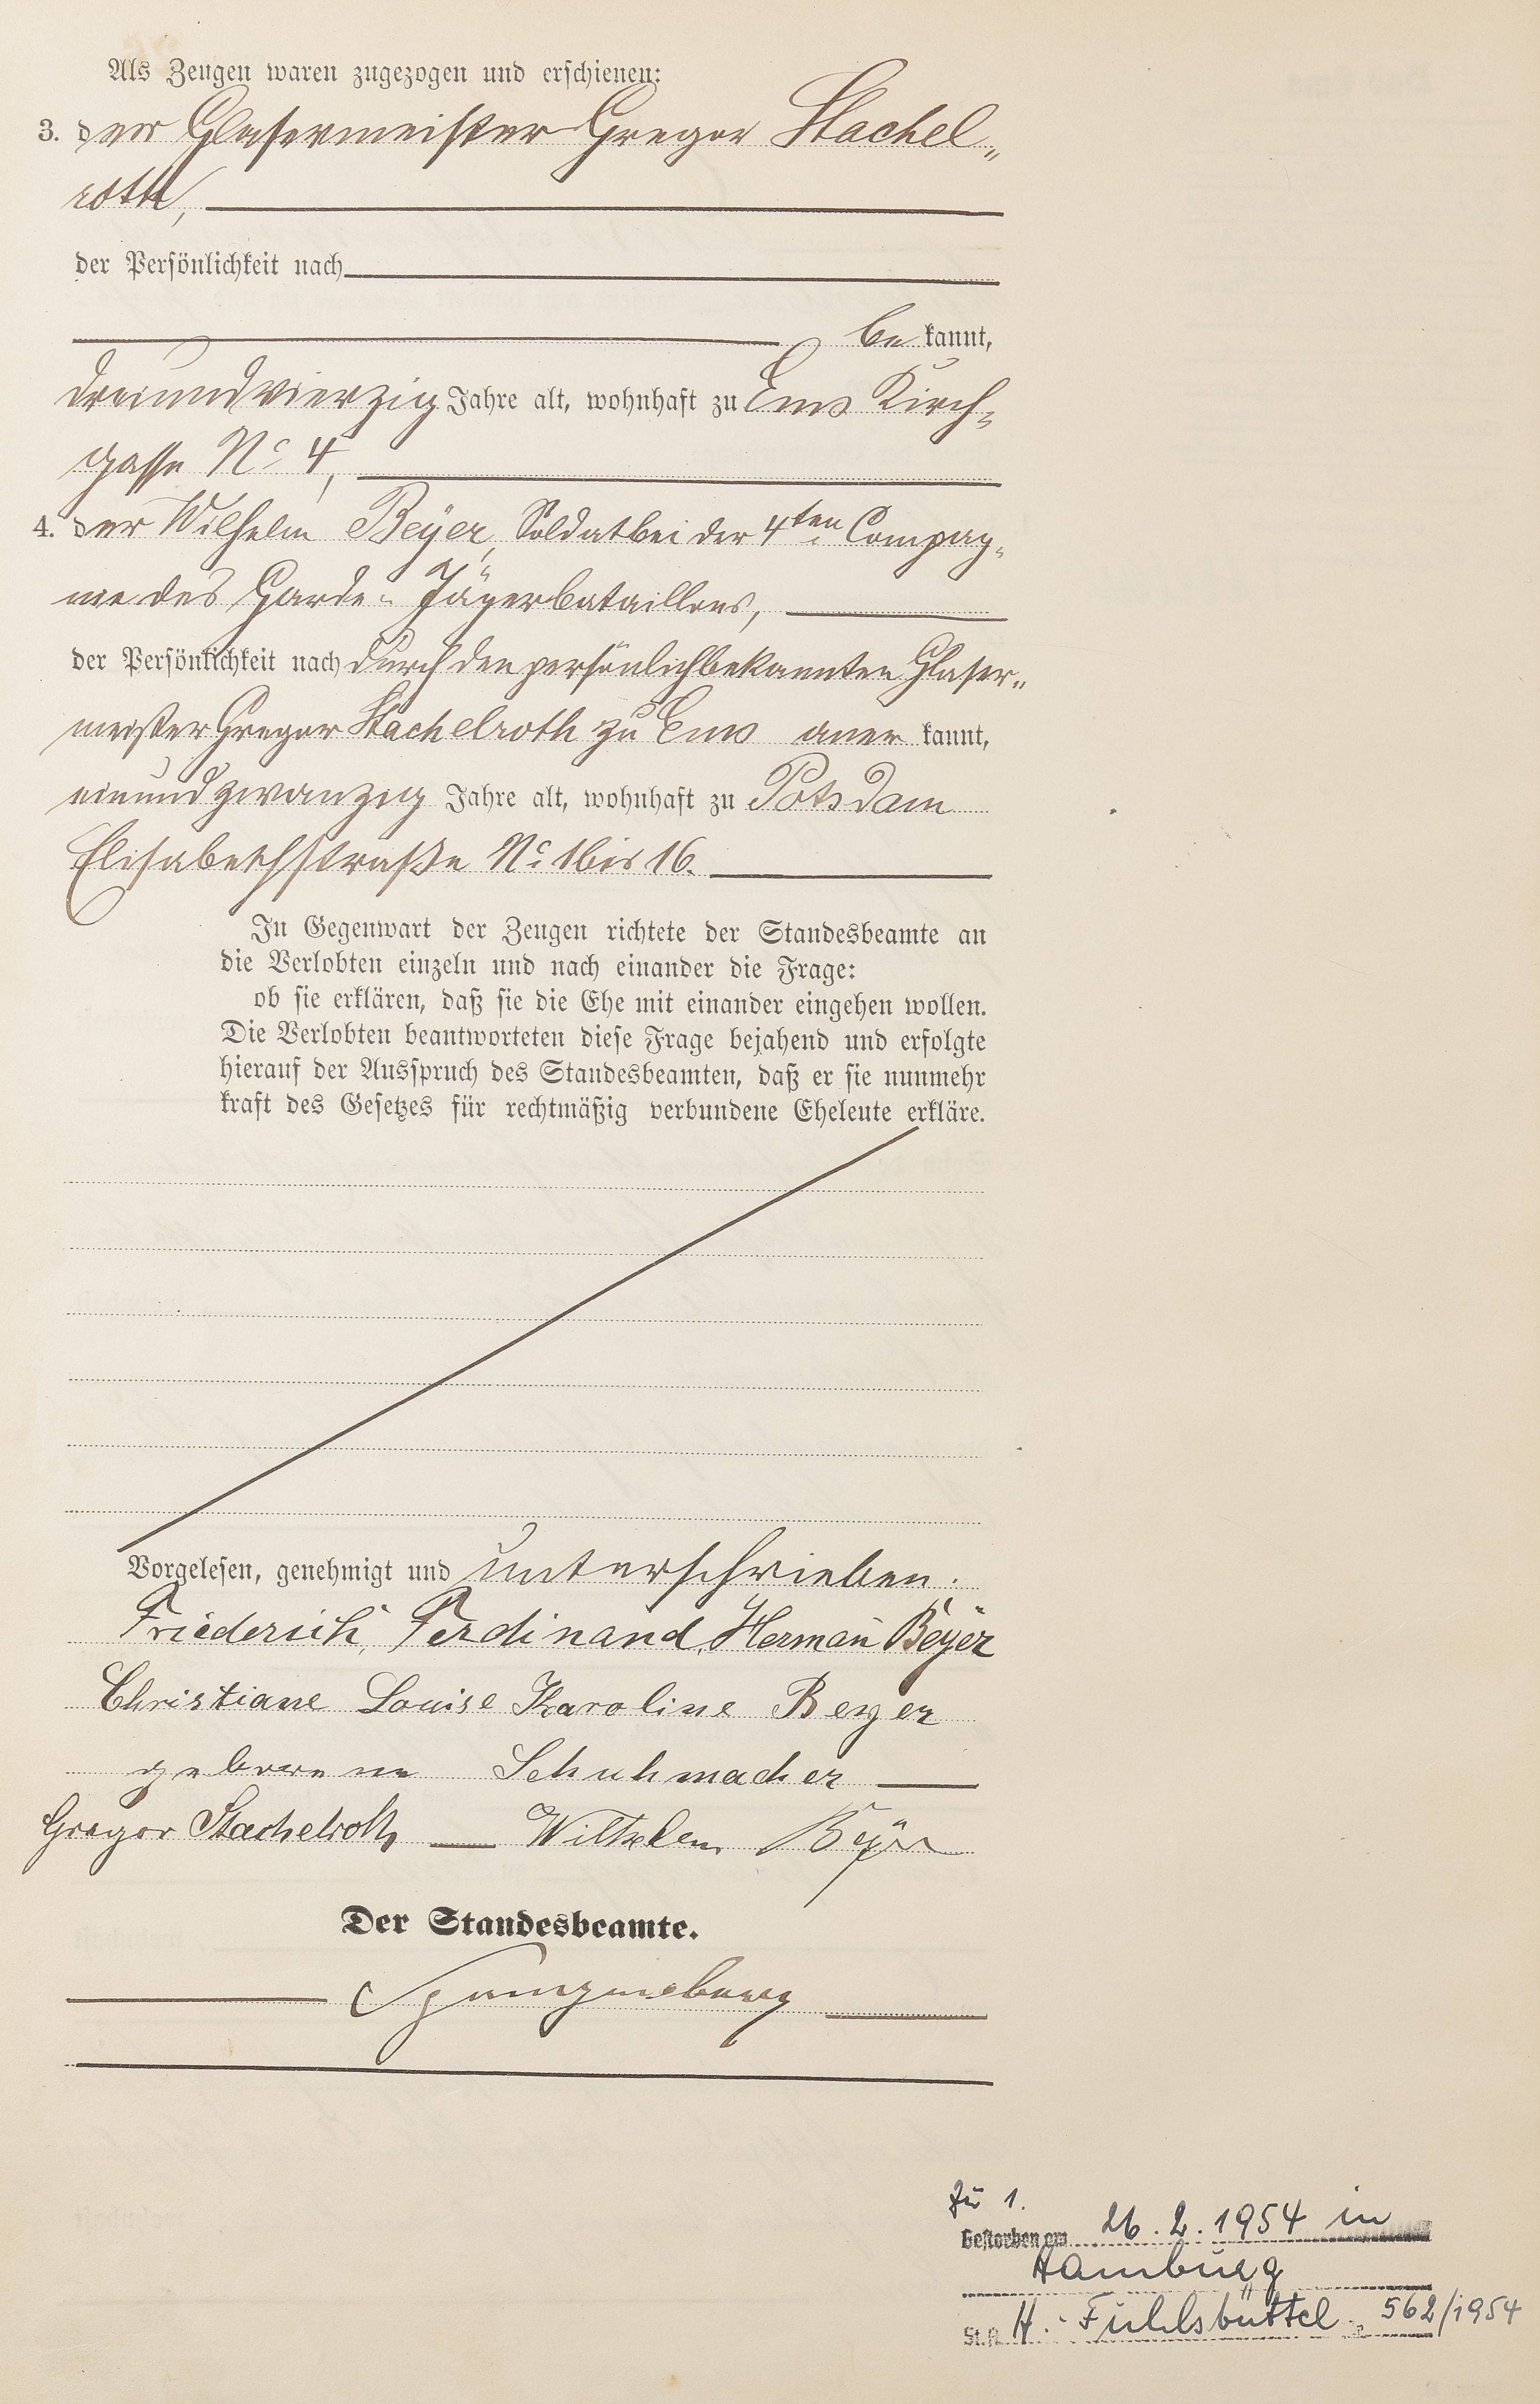 Als Zeugen waren zugezogen und erschienen:
3. der Glasermeister Gregor Stachel„
roth,
der Persönlichkeit nach
be kannt,
dreiundvierzig Jahre alt, wohnhaft zu Ems Kirch„
gasse No 4,
4. der Wilhelm Beÿer, Soldat bei der 4ten Compag„
nie des Garde„ Jägerbataillons,
der Persönlichkeit nach durch den persönlich bekannten Glaser„
meister Gregor Stachelroth zu Ems aner kannt,
einundzwanzig Jahre alt, wohnhaft zu Potsdam
Elisabethstraße No 1 bis 16.
In Gegenwart der Zeugen richtete der Standesbeamte an
die Verlobten einzeln und nach einander die Frage:
ob sie erklären, daß sie die Ehe mit einander eingehen wollen.
Die Verlobten beantworteten diese Frage bejahend und erfolgte
hierauf der Ausspruch des Standesbeamten, daß er sie nunmehr
kraft des Gesetzes für rechtmäßig verbundene Eheleute erkläre.
Vorgelesen, genehmigt und unterschrieben.
Friederich, Ferdinand, Herman̄ Beÿer
Christiane Louise Karoline Beyer
geborene Schuhmacher
Gregor Stachelroth Wilhelm Beÿer
Der Standesbeamte.
Spangenberg
Zu 1.
Gestorben am 26.2.1954 in
Hamburg
St.A. H.-Fuhlsbüttel 562/1954